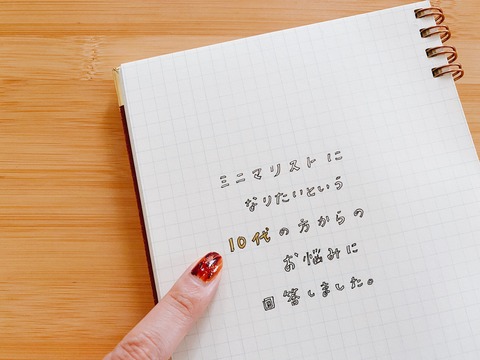 ミニマリストに
なりたいという
10代の方からの
お悩みに
回答しました。